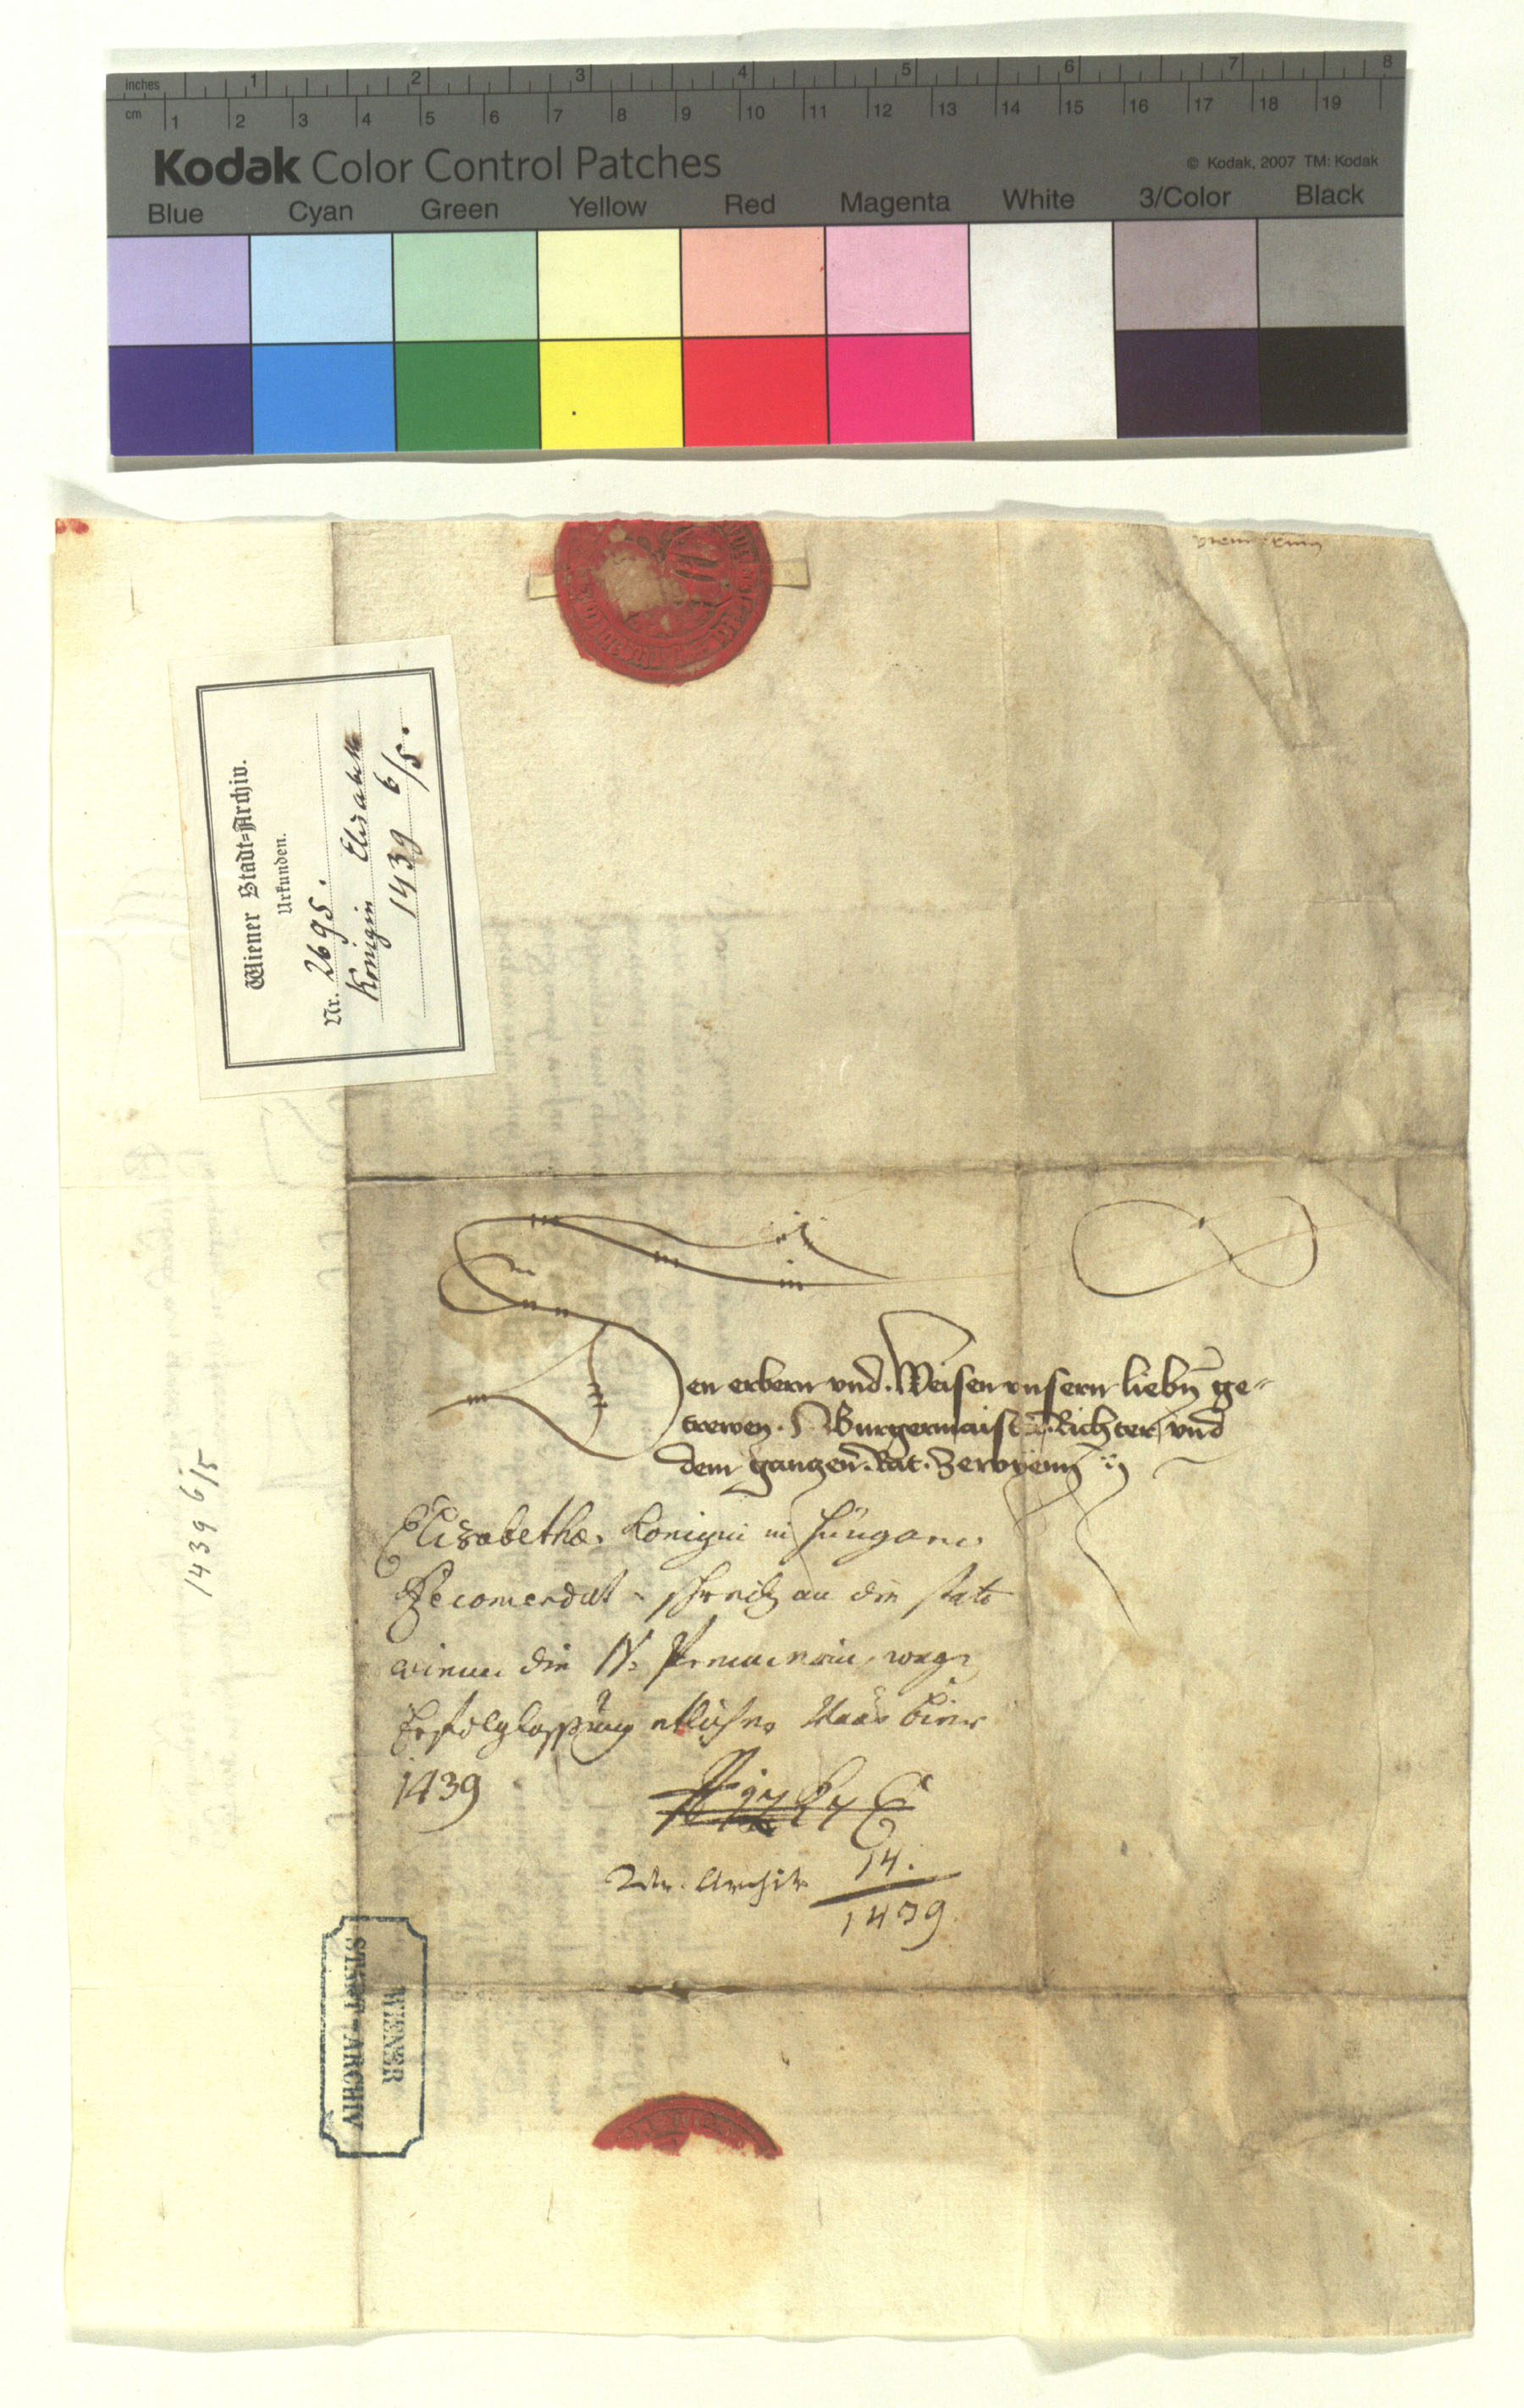 inches 1 2 3 4 5 6 7 8
cm 1 2 3 4 5 6 7 8 9 10 11 12 13 14 15 16 17 18 19
Kodak Color Control Patches
© Kodak, 2007 TM: Kodak
Blue Cyan Green Yellow Red Magenta White 3/Color Black
Wiener Stadt-Archiv.
Urkunden.
Nr. 2695.
Königin Elisabeth
1439 6/5.
Den erbern vnd Weisen vnsern liebn̄ ge-
trewen. N Burgermaist̄. Richter vnd
dem ganzen Rat. ze wyenn
1439 6/5
Elisabethæ, Konigin in Hungarn.
Recomendat- an die statt
die N.
etlicher Bier
1439
Wr. Archiv 14.
1439.
WIENER
STADT-ARCHIV